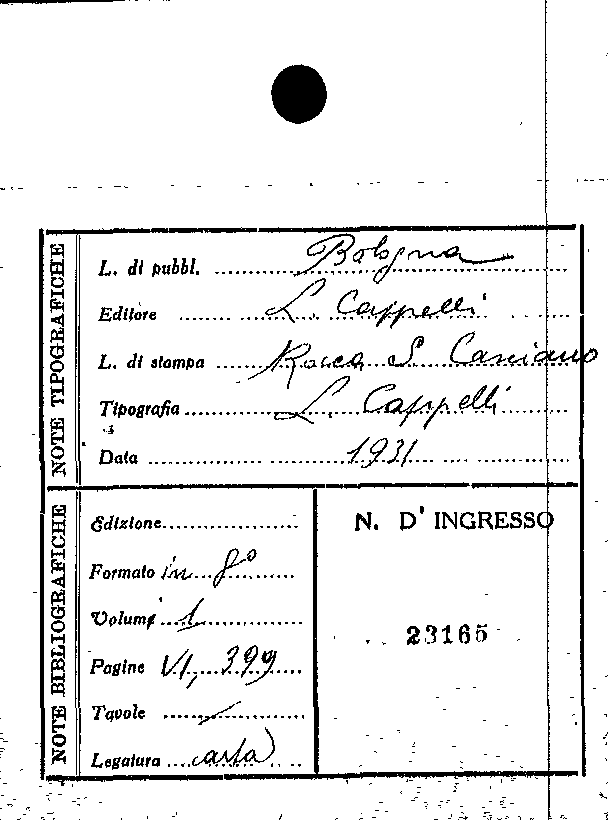 NOTE TIPOGRAFICHE
L. di pubbl. Bologna
Editore L. Cappelli
L. di stampa Rocca S. Casciano
Tipografia L. Cappelli
Data 1931
NOTE BIBLIOGRAFICHE
Edizione
Formato in 8°
Volumi 1
Pagine VI, 399
Tavole /
Legatura carta
N. D' INGRESSO
23165